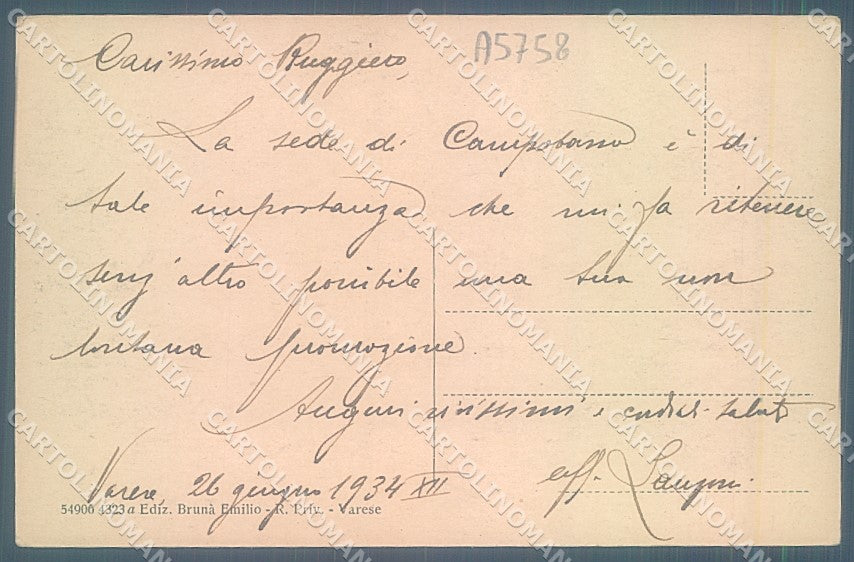 Carissimo Ruggiero,
A5758
La sede di Campobasso è di
tale importanza che mi fa ritenere
senz'altro possibile una tua non
lontana promozione.
Auguri vivissimi e cordiali saluti
aff.
Varese, 26 giugno 1934 XII
54900 4323a Ediz. Brunà Emilio - R. Priv. - Varese
CARTOLINOMANIA